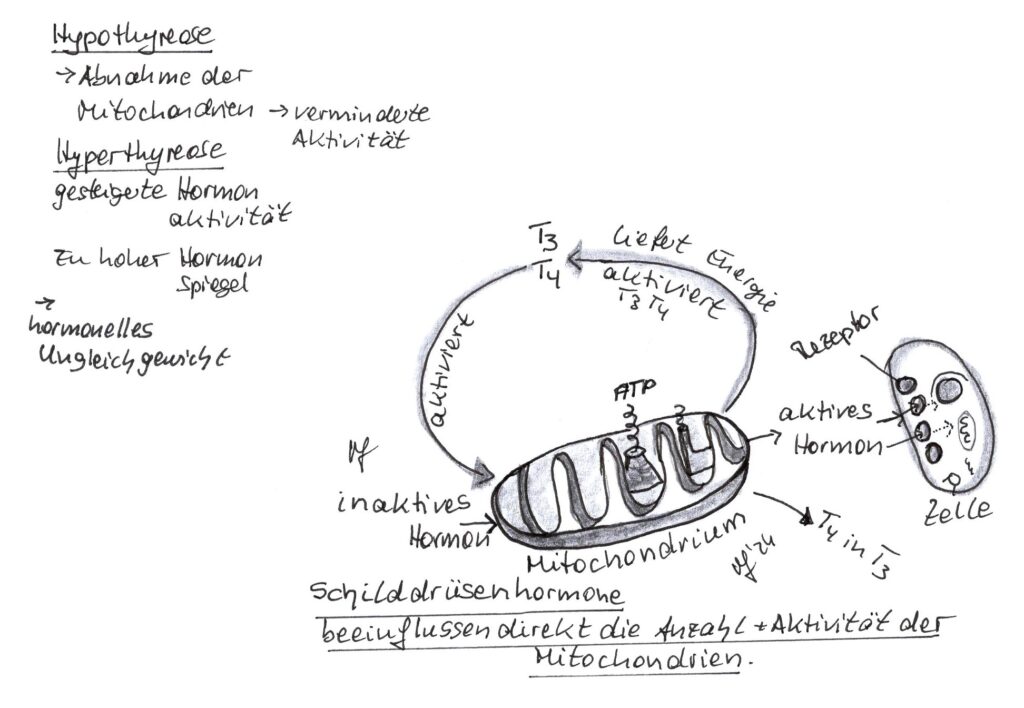 Hypothyreose
→ Abnahme der
Mitochondrien → verminderte
Aktivität
Hyperthyreose
gesteigerte Hormon
aktivität
Zu hoher Hormon
Spiegel
→
hormonelles
Ungleichgewicht
T3
T4
liefert Energie
aktiviert
T3 T4
aktiviert
ATP
Rezeptor
aktives
Hormon
Zelle
inaktives
Hormon
Mitochondrium
T4 in T3
Schilddrüsenhormone
beeinflussen direkt die Anzahl + Aktivität der
Mitochondrien.